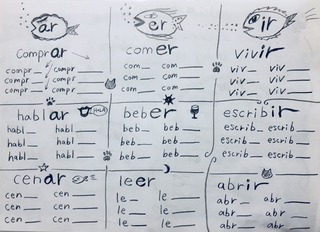 ar
comprar
compr__ compr__
compr__ compr__
compr__ compr__
er
comer
com__ com__
com__ com__
com__ com__
ir
vivir
viv__ viv__
viv__ viv__
viv__ viv__
hablar
habl__ habl__
habl__ habl__
habl__ habl__
beber
beb__ beb__
beb__ beb__
beb__ beb__
escribir
escrib__ escrib__
escrib__ escrib__
escrib__ escrib__
cenar
cen__ cen__
cen__ cen__
cen__ cen__
leer
le__ le__
le__ le__
le__ le__
abrir
abr__ abr__
abr__ abr__
abr__ abr__